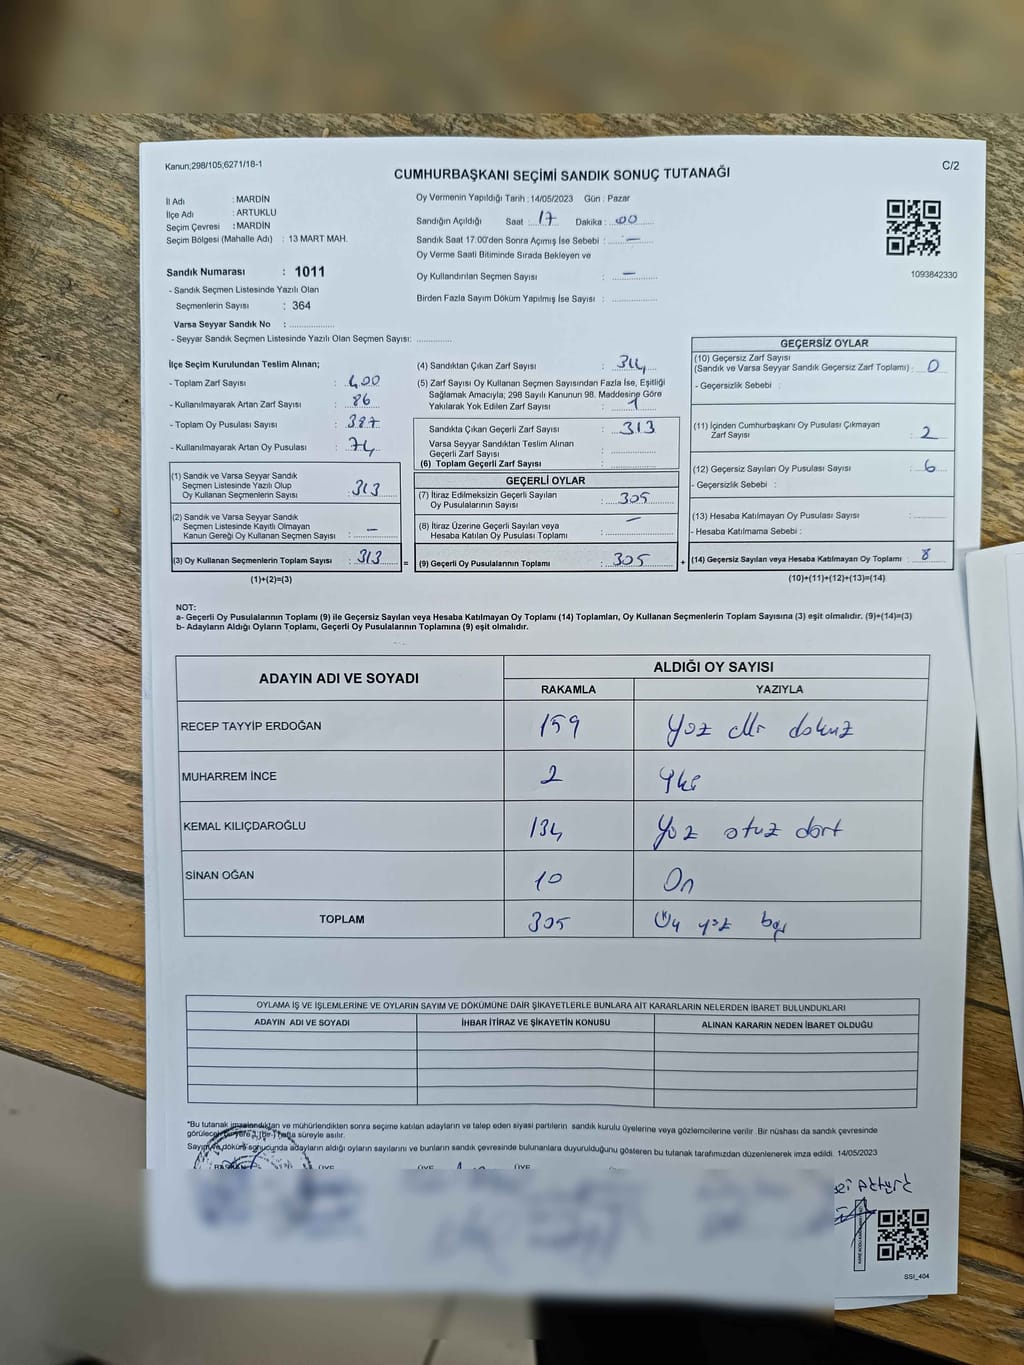 Kanun;298/105;6271/18-1
C/2
CUMHURBAŞKANI SEÇİMİ SANDIK SONUÇ TUTANAĞI
İl Adı : MARDİN
İlçe Adı : ARTUKLU
Seçim Çevresi : MARDİN
Seçim Bölgesi (Mahalle Adı) : 13 MART MAH.
Sandık Numarası : 1011
- Sandık Seçmen Listesinde Yazılı Olan
Seçmenlerin Sayısı : 364
Varsa Seyyar Sandık No : ..................
- Seyyar Sandık Seçmen Listesinde Yazılı Olan Seçmen Sayısı: .............
Oy Vermenin Yapıldığı Tarih : 14/05/2023 Gün : Pazar
Sandığın Açıldığı Saat : 17 Dakika : 00
Sandık Saat 17.00'den Sonra Açımış İse Sebebi : —
Oy Verme Saati Bitiminde Sırada Bekleyen ve
Oy Kullandırılan Seçmen Sayısı : —
Birden Fazla Sayım Döküm Yapılmış İse Sayısı : ..................
1093842330
İlçe Seçim Kurulundan Teslim Alınan;
- Toplam Zarf Sayısı : 400
- Kullanılmayarak Artan Zarf Sayısı : 86
- Toplam Oy Pusulası Sayısı : 387
- Kullanılmayarak Artan Oy Pusulası : 74
(1) Sandık ve Varsa Seyyar Sandık
Seçmen Listesinde Yazılı Olup
Oy Kullanan Seçmenlerin Sayısı : 313
(2) Sandık ve Varsa Seyyar Sandık
Seçmen Listesinde Kayıtlı Olmayan
Kanun Gereği Oy Kullanan Seçmen Sayısı : —
(3) Oy Kullanan Seçmenlerin Toplam Sayısı : 313 =
(1)+(2)=(3)
(4) Sandıktan Çıkan Zarf Sayısı : 314
(5) Zarf Sayısı Oy Kullanan Seçmen Sayısından Fazla İse, Eşitliği
Sağlamak Amacıyla; 298 Sayılı Kanunun 98. Maddesine Göre
Yakılarak Yok Edilen Zarf Sayısı : 1
Sandıkta Çıkan Geçerli Zarf Sayısı : 313
Varsa Seyyar Sandıktan Teslim Alınan
Geçerli Zarf Sayısı : ..................
(6) Toplam Geçerli Zarf Sayısı : ..................
GEÇERLİ OYLAR
(7) İtiraz Edilmeksizin Geçerli Sayılan
Oy Pusulalarının Sayısı : 305
(8) İtiraz Üzerine Geçerli Sayılan veya
Hesaba Katılan Oy Pusulası Toplamı : —
(9) Geçerli Oy Pusulalarının Toplamı : 305 +
GEÇERSİZ OYLAR
(10) Geçersiz Zarf Sayısı
(Sandık ve Varsa Seyyar Sandık Geçersiz Zarf Toplamı) : 0
- Geçersizlik Sebebi :
(11) İçinden Cumhurbaşkanı Oy Pusulası Çıkmayan
Zarf Sayısı : 2
(12) Geçersiz Sayılan Oy Pusulası Sayısı : 6
- Geçersizlik Sebebi :
(13) Hesaba Katılmayan Oy Pusulası Sayısı : ............
- Hesaba Katılmama Sebebi :
(14) Geçersiz Sayılan veya Hesaba Katılmayan Oy Toplamı : 8
(10)+(11)+(12)+(13)=(14)
NOT:
a- Geçerli Oy Pusulalarının Toplamı (9) ile Geçersiz Sayılan veya Hesaba Katılmayan Oy Toplamı (14) Toplamları, Oy Kullanan Seçmenlerin Toplam Sayısına (3) eşit olmalıdır. (9)+(14)=(3)
b- Adayların Aldığı Oyların Toplamı, Geçerli Oy Pusulalarının Toplamına (9) eşit olmalıdır.
ADAYIN ADI VE SOYADI
ALDIĞI OY SAYISI
RAKAMLA YAZIYLA
RECEP TAYYİP ERDOĞAN 159 Yüz elli dokuz
MUHARREM İNCE 2 İki
KEMAL KILIÇDAROĞLU 134 Yüz otuz dört
SİNAN OĞAN 10 On
TOPLAM 305 Üç yüz beş
OYLAMA İŞ VE İŞLEMLERİNE VE OYLARIN SAYIM VE DÖKÜMÜNE DAİR ŞİKAYETLERLE BUNLARA AİT KARARLARIN NELERDEN İBARET BULUNDUKLARI
ADAYIN ADI VE SOYADI İHBAR İTİRAZ VE ŞİKAYETİN KONUSU ALINAN KARARIN NEDEN İBARET OLDUĞU
*Bu tutanak imzalandıktan ve mühürlendikten sonra seçime katılan adayların ve talep eden siyasi partilerin sandık kurulu üyelerine veya gözlemcilerine verilir. Bir nüshası da sandık çevresinde
görülecek bir yere 1 (bir) hafta süreyle asılır.
Sayım ve döküm sonucunda adayların aldığı oyların sayılarını ve bunların sandık çevresinde bulunanlara duyurulduğunu gösteren bu tutanak tarafımızdan düzenlenerek imza edildi. 14/05/2023
BAŞKAN ÜYE ÜYE ÜYE
Aktürk
SSI_404